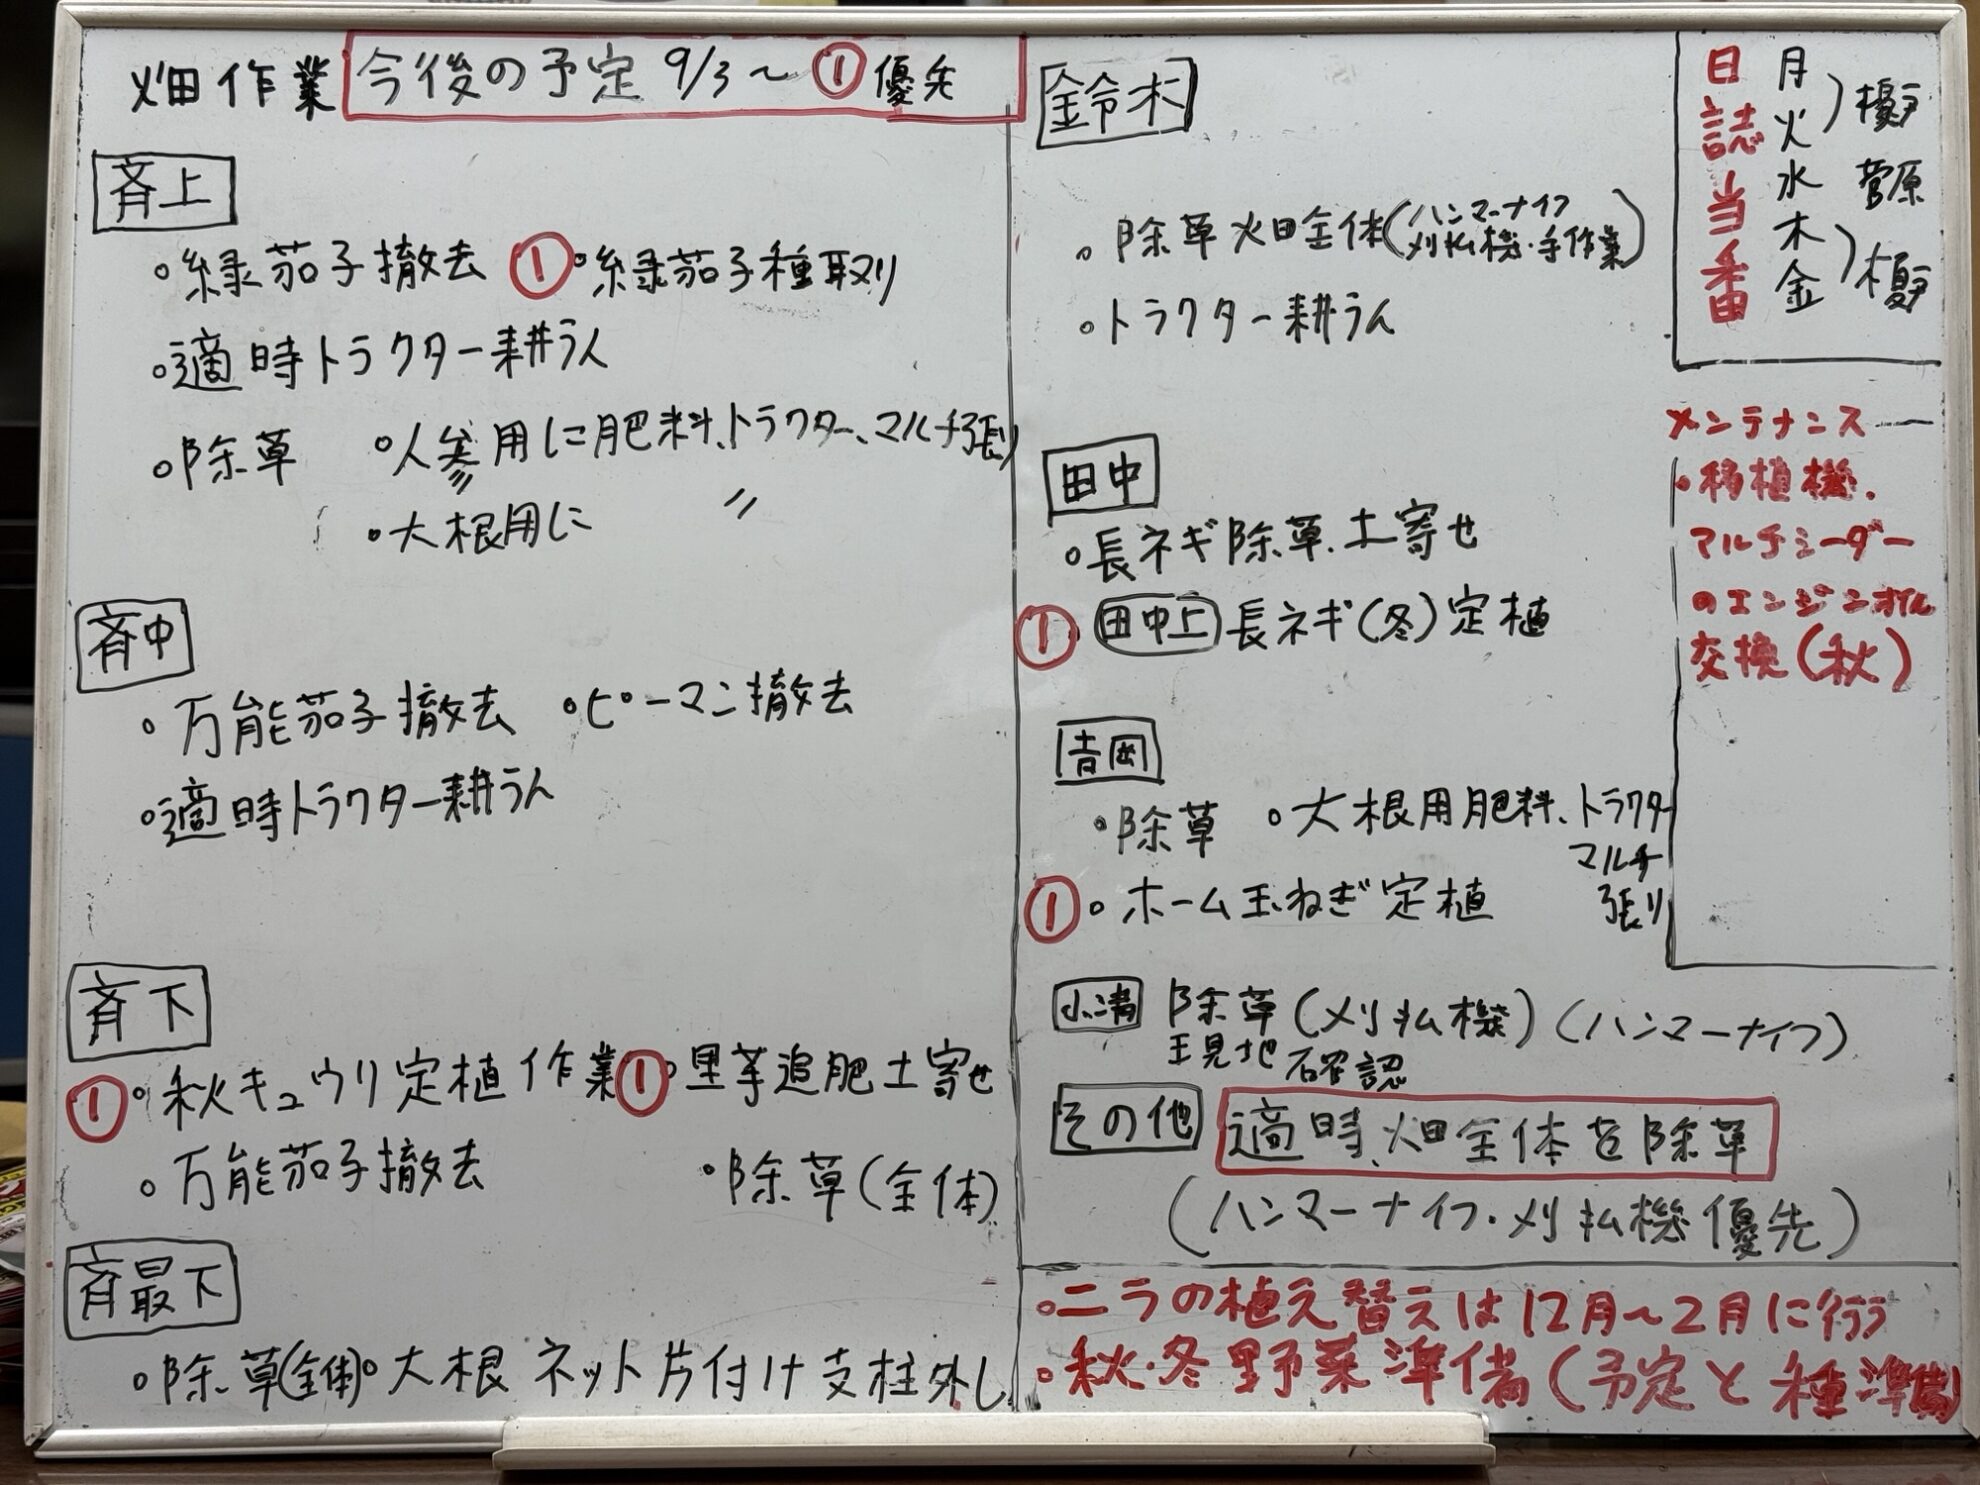 畑作業 今後の予定 9/3～ ① 優先
斉上
◦緑茄子撤去 ①◦緑茄子種取り
◦適時トラクター耕うん
◦除草 ◦人参用に肥料、トラクター、マルチ張り
◦大根用に 〃
斉中
◦万能茄子撤去 ◦ピーマン撤去
◦適時トラクター耕うん
斉下
①◦秋キュウリ定植作業 ①◦里芋追肥土寄せ
◦万能茄子撤去 ◦除草(全体)
斉最下
◦除草(全体)◦大根ネット片付け支柱外し
鈴木
◦除草畑全体(ハンマーナイフ
刈払機・手作業)
◦トラクター耕うん
田中
◦長ネギ除草、土寄せ
① 田中上 長ネギ(冬)定植
吉岡
◦除草 ◦大根用肥料、トラクター
マルチ
張り
①◦ホーム玉ねぎ定植
小溝 除草(刈払機)(ハンマーナイフ)
現地確認
その他 適時、畑全体を除草
(ハンマーナイフ・刈払機優先)
◦ニラの植え替えは12月～2月に行う
◦秋・冬野菜準備(予定と種準備)
日誌当番
月
火
水 菅原
木
金
メンテナンス
◦移植機、
マルチシーダー
のエンジンオイル
交換(秋)